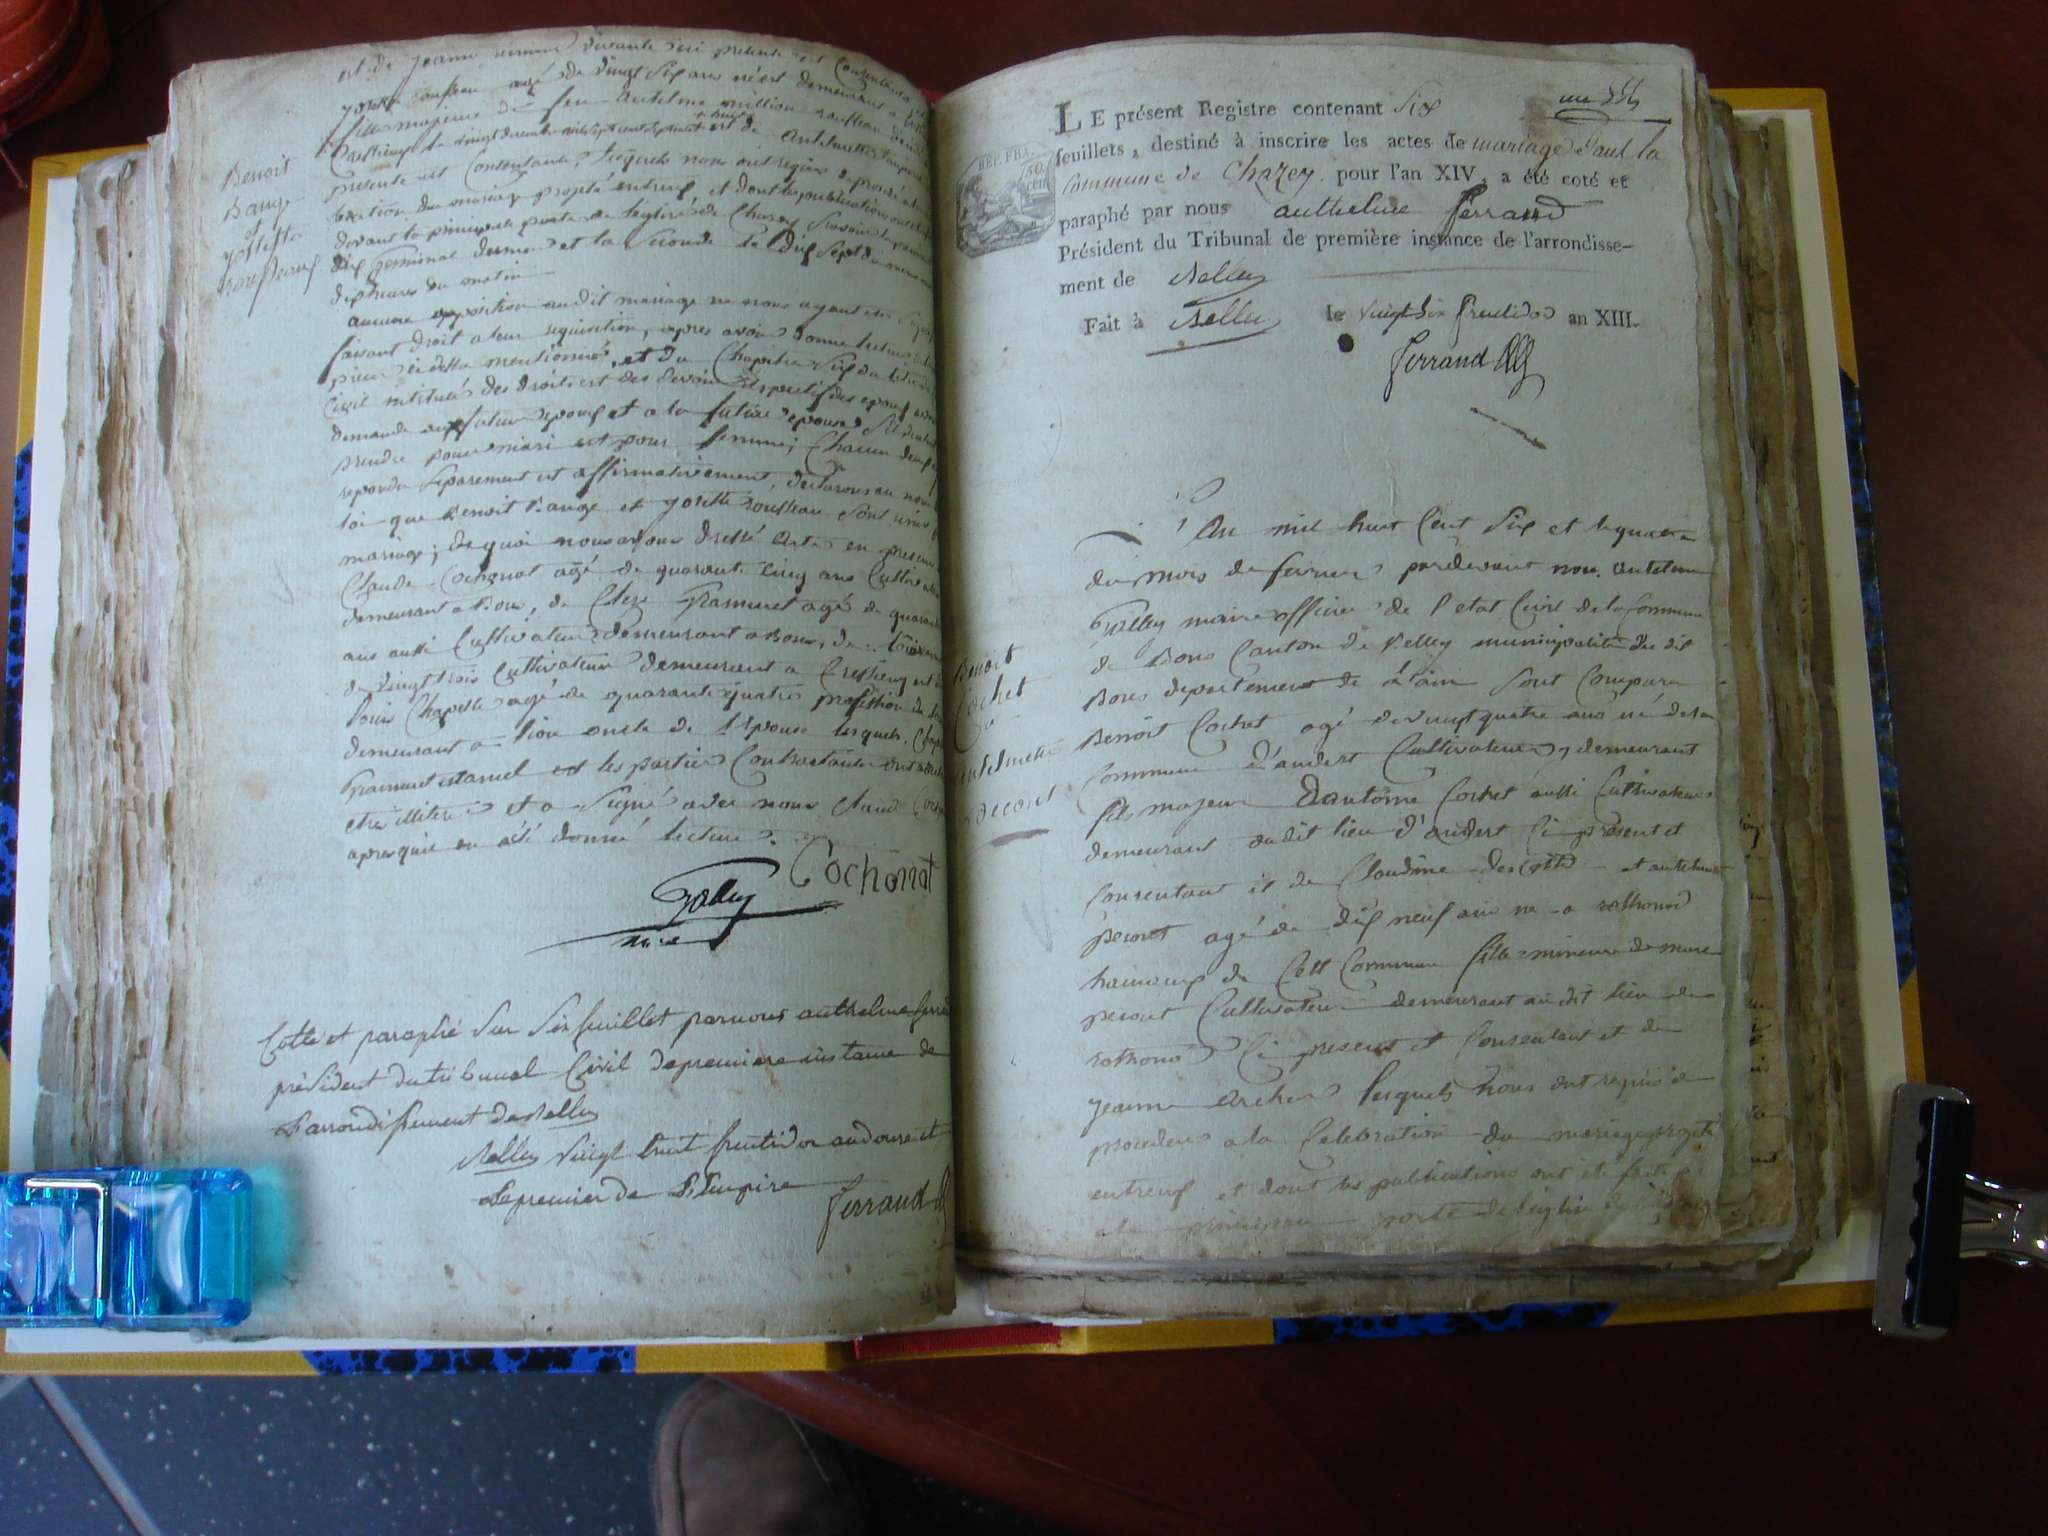 et de jeanne vivante ici présente et consentante
josette rousseau agé de vingt six ans née et demeurant a
fille majeure de feu antelme million rousseau décédé
Cressieux le vingt decembre mil sept cent et de Antelmette
présente et consentante, lesquels nous ont requis de procéder a la
bration du mariage projetté entreux et dont les publications ont été faites
devant la principale porte de leglise de Chazey savoir la premiere
dix germinal dernier et la seconde le dix sept du meme mois
dix heures du matin
Benoit
Bange
et
josette
rousseaux
aucune opposition audit mariage ne nous ayant été
faisant droit a leur requisition, apres avoir donné lecture
pieces ci dessus mentionnés, et du Chapitre six du titre du
Civil intitulé des droits et des devoirs respectif des epoux avons
demande au futur epoux et a la future epouse s'il veulent
prendre pour mari et pour femme; chacun deux
repondu separement et affirmativement, declarons au nom
loi que Benoit Bange et josette rousseau sont unis
mariage; de quoi nous avons dressé acte en presence
Claude Cochonat agé de quarante cinq ans Cultivateur
demeurant a Bons, de Clere Gramuset agé de quarante
ans aussi Cultivateur demeurant a Bons, de
de vingt trois Cultivateur demeurant a Cressieux et
Louis Chapelle agé de quarante quatre profession de
demeurant a lion oncle de l'epouse lesquels
et les parties Contractantes ont
etre illiteré et a signé avec nous Claude
apres quil en a été donné lecture.
Cochonat
Galley
maire
Cotté et paraphé sur six feuillet par nous anthelme ferrand
président du tribunal Civil de premiere instance de
L'arrondissement de Belley
Belley vingt huit fructidor an douze et
Le premier de L'Empire
ferrand
LE présent Registre contenant six
feuillets, destiné à inscrire les actes de mariage dans la
Commune de Chazey pour l'an XIV, a été coté et
paraphé par nous anthelme ferrand
Président du Tribunal de première instance de l'arrondisse-
ment de Belley
Fait à Belley le vingt six fructidor an XIII.
REP. FRA.
ferrand
L'an mil huit Cent six et le quatre
du mois de fevrier pardevant nous antelme
Galley maire officier de l'etat Civil de la Commune
de Bons Canton de Belley municipalité du dit
Bons departement de l'ain sont Comparu
Benoit Cochet agé de vingt quatre ans né de la
Commune d'andert Cultivateur, demeurant
fils majeur d'antoine Cochet aussi Cultivateur
demeurant audit lieu d'andert ci present et
Consentant et de Claudine et antelmette
pecout agé de dix neuf ans né a rothonod
hameaux de Cette Commune fille mineure de marc
pecout Cultivateur demeurant audit lieu de
rothonod ci present et Consentant et de
jeanne archer lesquels nous ont requis de
proceder a la Celebration du mariage projeté
entreux et dont les publications ont été faites
a la principau porte de l'eglise de
Benoit
Cochet
et
antelmette
pecout